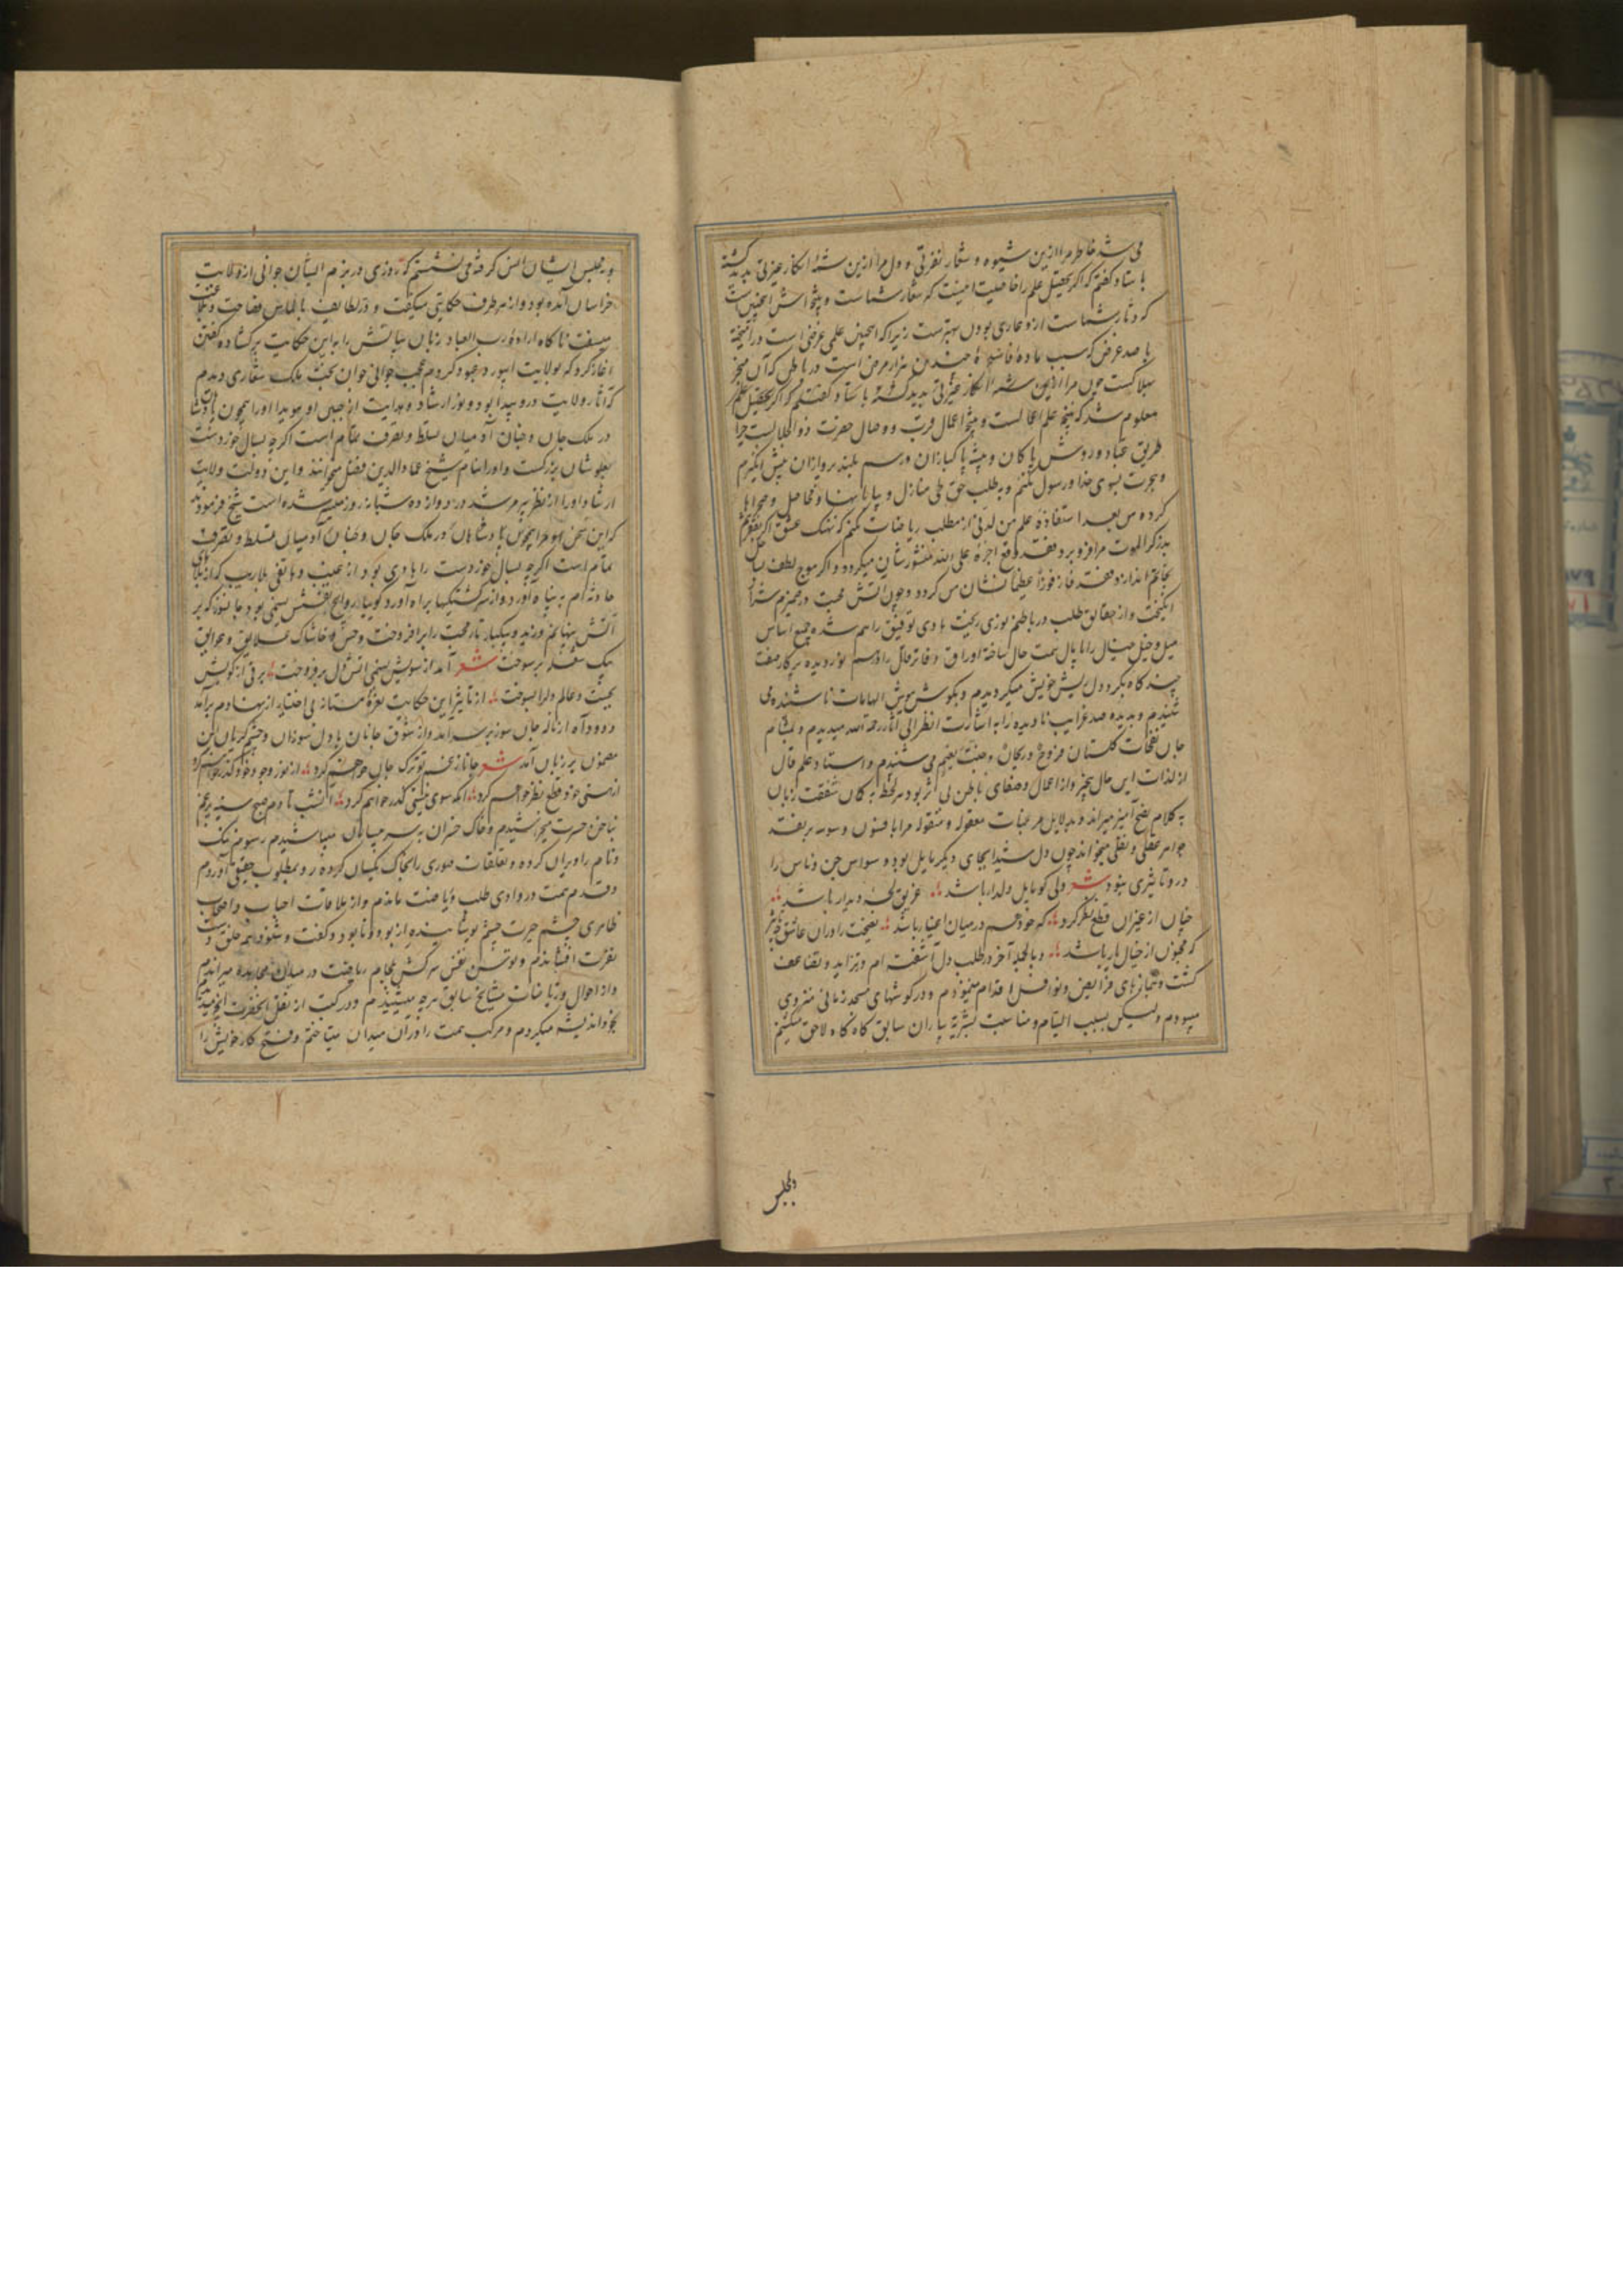 می شد خاطر مرا ازین شیوه و شعار نفرتی و دل مرا ازین شیه انکار حیرتی پدید گشته
با ستاد گفتم که اگر تحصیل علم را خاصیت اینست که شعار شماست و نتیجه اش اینچنین ست
که دثار شماست ازو عاری بودن بهترست زیرا که اینچنین علمی عرضی است در آمیخته
با صد غرض که سبب ماده فاسده چندین هزار مرض است در باطن که آن منجر
بهلاکست چون مرا ازین شیه انکار حیرتی پدید گشته با ستاد گفتم که اگر تحصیل علم
معلوم شد که نتیجه علم اعمالست و نتیجه اعمال قرب و وصال حضرت ذوالجلالست چرا
طریق عباد و روش پاکان و پیشه پاکبازان و رسم بلند پروازان پیش نگیرم
و هجرت بسوی خدا و رسول نکنم و به طلب حق طی منازل و پایانها و مراحل و صحراها
کرده پس بعد استفاده علم من لدنی از مطلب ریاضات نکنم که نهنگ عشق اگر بقعرم
بذکر الموت فرو برد فقد وقع اجره علی الله منشور شان میگردد و اگر موج لطف بساحل
نجاتم اندازد فقد فاز فوزا عظیما نشان من گردد و چون آتش محبت در ضمیرم شرار
انگیخت و از حقایق طلب در باطنم نوری ریخت هادی توفیق راهم شده جمیع اساس
میل و خیل خیال را پامال همت حال ساخته اوراق دفاتر قال را در هم نوردیده پرکار صفت
چند گاه بگرد دل ریش خویش میگردیدم و بگوش هوش الهامات ناشنیده می
شنیدم و بدیده صد غرایب نادیده را به اشارت انظر الی آثار رحمة الله میدیدم و بمشام
جان نفحات گلستان فروح و ریحان و جنت نعیم می شنیدم و استاد علم قال
از لذات این حال بیخبر و از اعمال و صفای باطن بی اثر بود هر لحظه به کمان شفقت زبان
به کلام نصح آمیز میراند و بدلایل مرغبات معقوله و منقوله مرا بافسون وسوسه بر بقعد
جواهر عقلی و نقلی میخواند چون دل شیدا بجای دیگر مایل بود وسواس جن و ناس را
درو تاثیری نبود شعر دلی کو مایل دلدار باشد غریق لجه دیدار باشد
چنان از غیر آن قطع نظر کرد که خود هم در میان اغیار باشد نصیحت را در آن عاشق چه تاثیر
که مجنون از خیال یار باشد و بالجمله آخر در طلب دل آشفته ام و تزاید و تضاعف
گشت و بنمازهای فرایض و نوافل اقدام مینمودم و در گوشهای مسجد زمانی منزوی
میبودم و لیکن بسبب التیام و مناسبت بشریه یاران سابق گاه گاه لاحق میگشتم
و مجلس
و بمجلس ایشان انس گرفته می نشستم که روزی در بزم ایشان جوانی از ولایت
خراسان آمده بود و از هر طرف حکایتی میگفت و در لطایف بالماس فصاحت و بلاغت
میسفت ناگاه اراده رب العباد زبان بیانش را به این حکایت بر گشاده گفتن
آغاز کرد که بولایت ابیورد عبور کردم عجب جوانی جوان بخت ملک شعاری دیدم
که آثار ولایت درو پیدا بود و نور ارشاد و هدایت از جبین او هویدا او را همچون پادشاهان
در ملک جان و جنان آدمیان تسلط و تصرف تمام است اگرچه بسال خوردست
بعلو شان بزرگست و او را بنام شیخ عماد الدین فضل الله میخوانند و این دولت ولایت
ارشاد او را از نظر پیر مرشد در دوازده شبانه روز میسر شده است شیخ فرمودند
که این سخن او مرا همچون پادشاهان در ملک جان و جنان آدمیان تسلط و تصرف
تمام است اگرچه بسال خوردست راهادی بود از غیب و هاتفی بلاریب که از بلای
حادثه ام به پناه آورد و از سرگشتگیها براه آورد گوییا روایح نفسش نسیمی بود جانسوز که بر
آتش پنهانم وزید و بیکبار نار محبت را برافروخت و خس و خاشاک علایق و عوایق
بیک شعله بسوخت شعر آمد از سویش نسیمی آتش دل بر فروخت برقی از کویش
بجست و عالم دل را بسوخت از تاثیر این حکایت نعره مستانه بی اختیار از نهادم برآمد
و دود آه از ناله جان سوز بر سر آمد و از شوق جانان با دل سوزان و چشم گریان این
مضمون بر زبان آمد شعر جانا ز غم تو ترک جان خواهم کرد از نور وجود خود گذر خواهم کرد
از هستی خود قطع نظر خواهم کرد آنکه سوی نیستی گذر خواهم کرد آنشب تا دم صبح سینه پر غم
بناخن حسرت میخراشیدم و خاک خسران به سر میپاشیدم رسوم ننگ
و نام را ویران کرده و تعلقات صوری را بخاک یکسان کرده رو بمطلوب حقیقی آوردم
و قدم همت در وادی طلب و ریاضت ماندم و از ملاقات احباب و اصحاب
ظاهری چشم حیرت چشم پوشانیده از بود و نابود و گفت و شنود همه خلق دست
نفرت افشاندم و توسن نفس سرکش بلجام ریاضت در میدان مجاهده میراندم
و از احوال و ریاضات مشایخ سابق هر چه میشنیدم و در کتب از نقل آنحضرت آنچه میدیدم
بخود اندیشه میکردم و مرکب همت را در آن میدان میتاختم و فتح کار خویش را